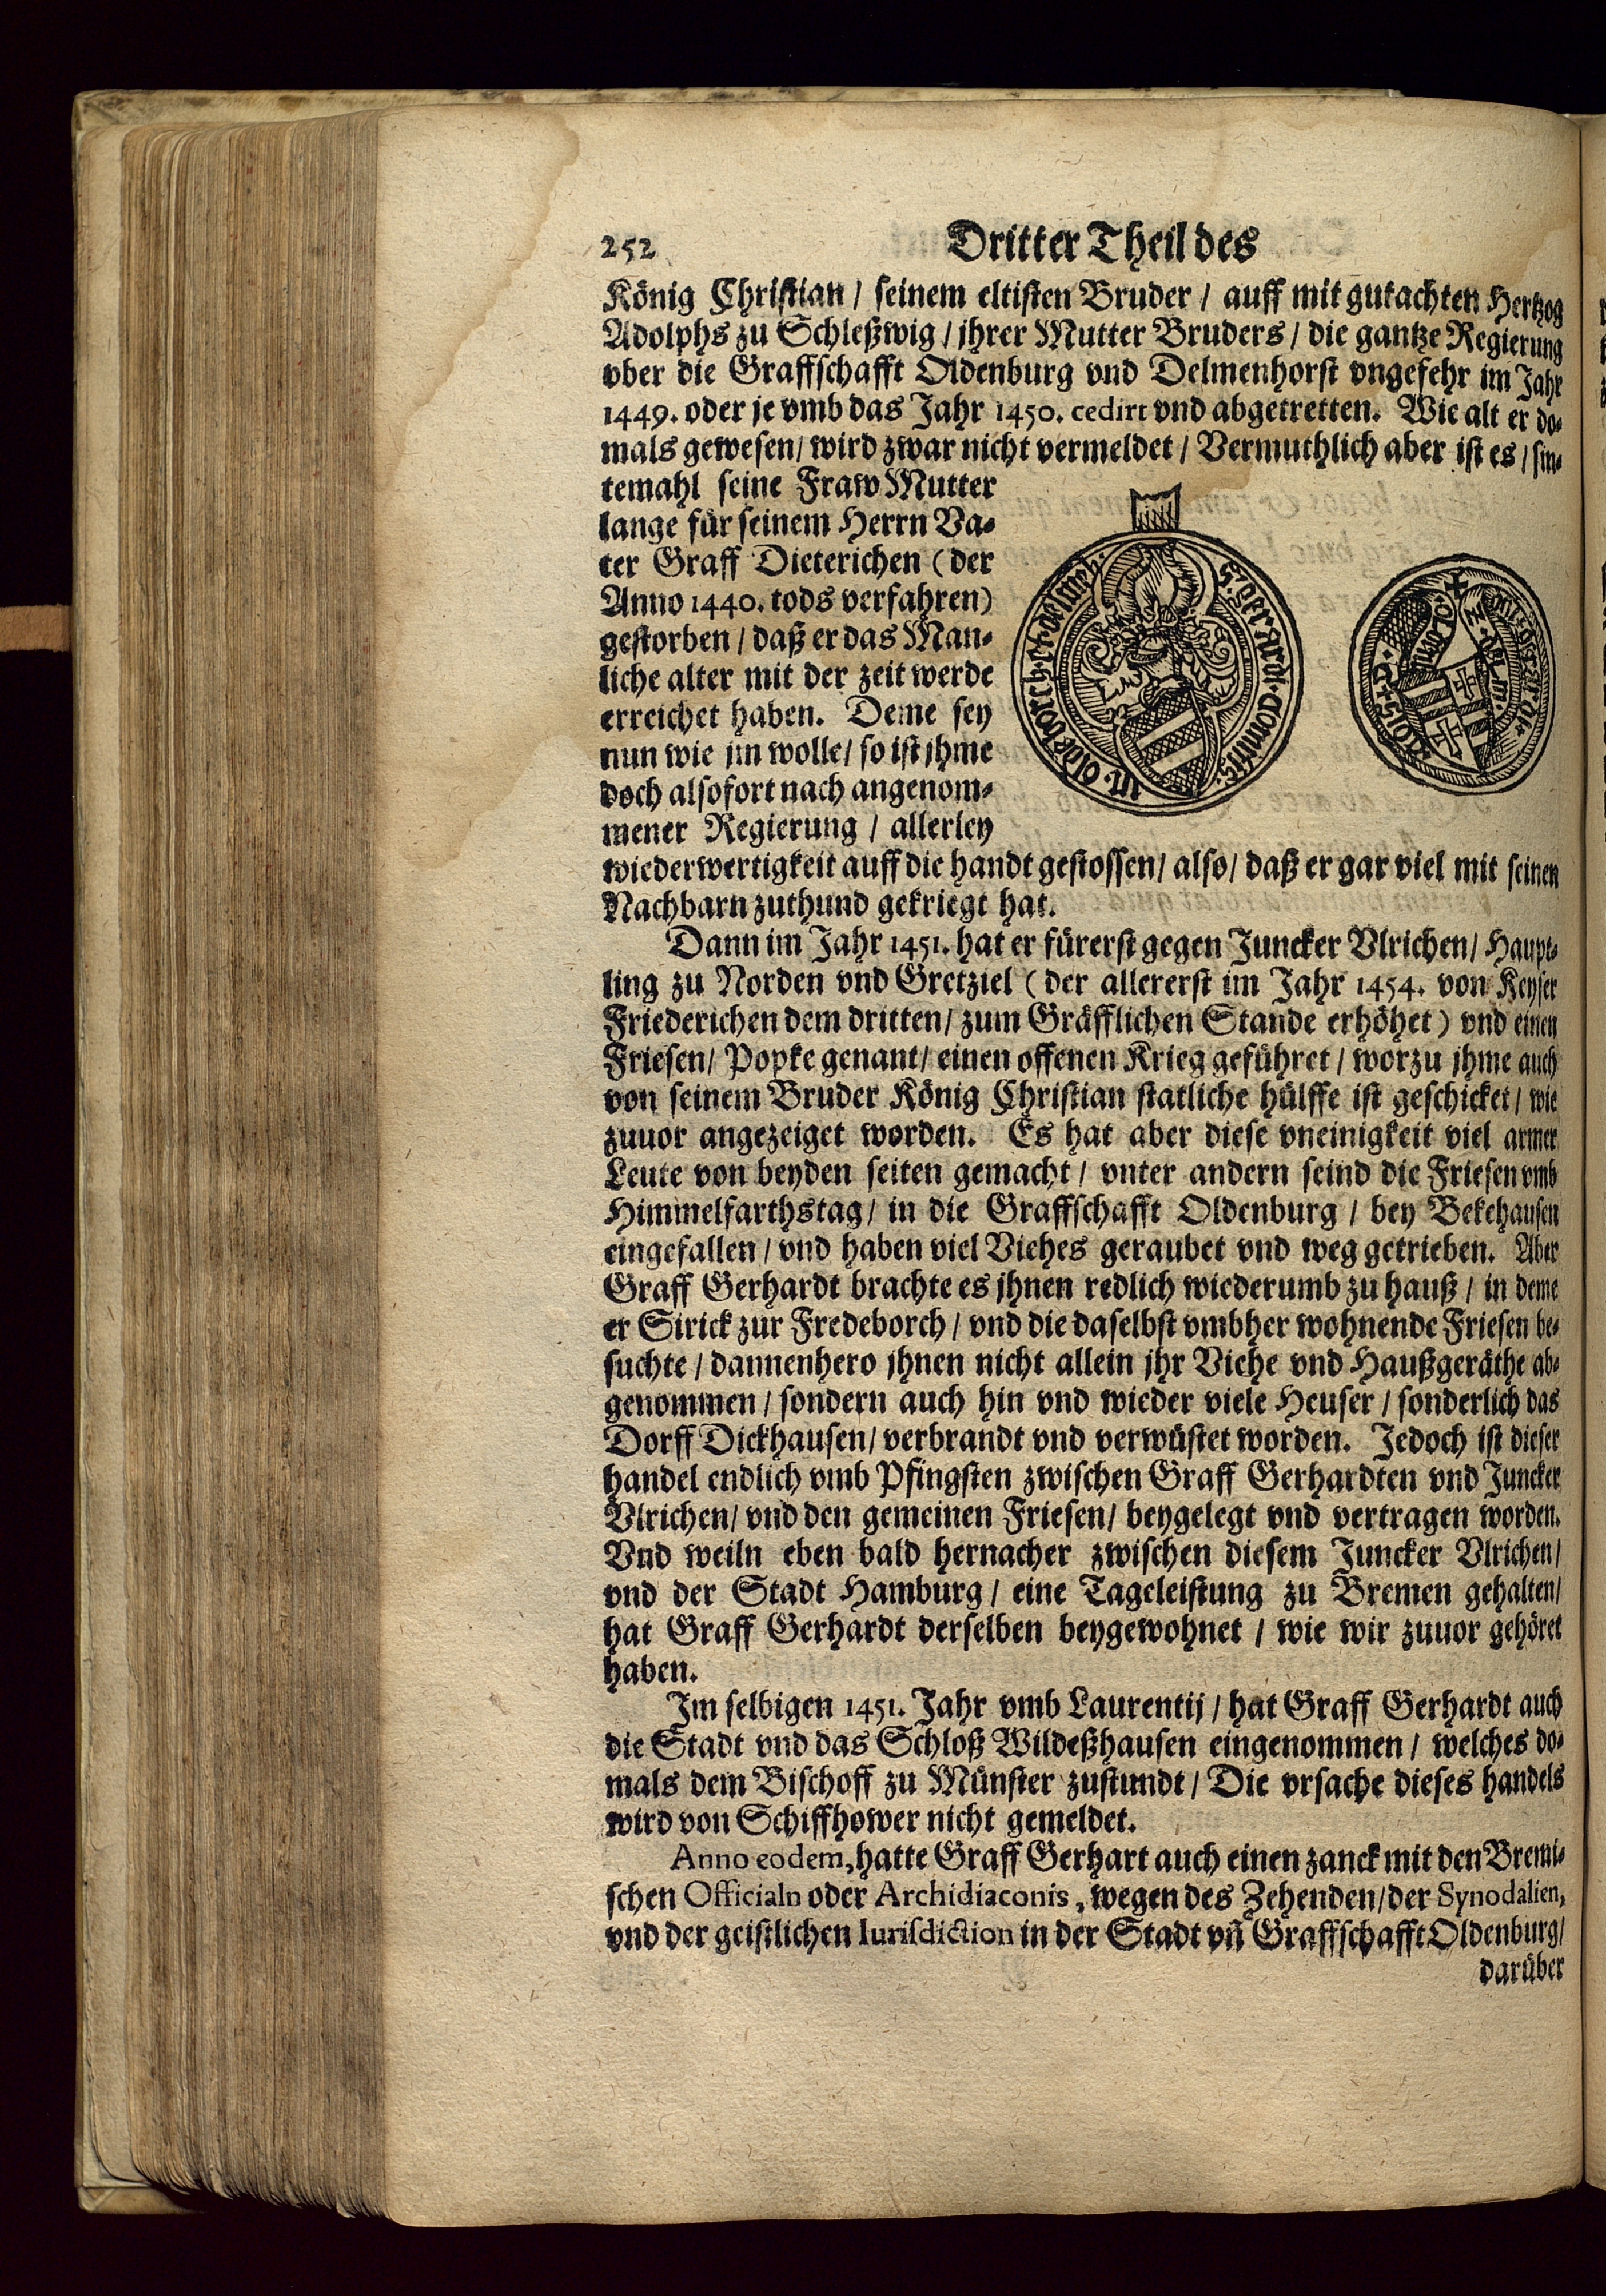 252 Dritter Theil des
König Christian / seinem eltisten Bruder / auff mit gutachten Hertzog
Adolphs zu Schleßwig / jhrer Mutter Bruders / die gantze Regierung
vber die Graffschafft Oldenburg vnd Delmenhorst vngefehr im Jahr
1449. oder je vmb das Jahr 1450. cedirt vnd abgetretten. Wie alt er do⸗
mals gewesen / wird zwar nicht vermeldet / Vermuthlich aber ist es / sin⸗
temahl seine Fraw Mutter
lange für seinem Herrn Va⸗
ter Graff Dieterichen (der
Anno 1440. tods verfahren)
gestorben / daß er das Man⸗
liche alter mit der zeit werde
erreichet haben. Deme sey
nun wie jm wolle / so ist jhme
doch alsofort nach angenom⸗
mener Regierung / allerley
S. gerardi. comitis.
in. oldeborch. et. delmeh.
wiederwertigkeit auff die handt gestossen / also / daß er gar viel mit seinen
Nachbarn zuthund gekriegt hat.
Dann im Jahr 1451. hat er fürerst gegen Juncker Vlrichen / Haupt⸗
ling zu Norden vnd Gretziel (der allererst im Jahr 1454. von Keyser
Friederichen dem dritten / zum Gräfflichen Stande erhöhet) vnd einen
Friesen / Popke genant / einen offenen Krieg geführet / worzu jhme auch
von seinem Bruder König Christian statliche hülffe ist geschicket / wie
zuuor angezeiget worden. Es hat aber diese vneinigkeit viel armer
Leute von beyden seiten gemacht / vnter andern seind die Friesen vmb
Himmelfarthstag / in die Graffschafft Oldenburg / bey Bekehausen
eingefallen / vnd haben viel Viehes geraubet vnd weg getrieben. Aber
Graff Gerhardt brachte es jhnen redlich wiederumb zu hauß / in deme
er Sirick zur Fredeborch / vnd die daselbst vmbher wohnende Friesen be⸗
suchte / dannenhero jhnen nicht allein jhr Viehe vnd Haußgeräthe ab⸗
genommen / sondern auch hin vnd wieder viele Heuser / sonderlich das
Dorff Dickhausen / verbrandt vnd verwüstet worden. Jedoch ist dieser
handel endlich vmb Pfingsten zwischen Graff Gerhardten vnd Juncker
Vlrichen / vnd den gemeinen Friesen / beygelegt vnd vertragen worden.
Vnd weiln eben bald hernacher zwischen diesem Juncker Vlrichen /
vnd der Stadt Hamburg / eine Tageleistung zu Bremen gehalten /
hat Graff Gerhardt derselben beygewohnet / wie wir zuuor gehöret
haben.
Im selbigen 1451. Jahr vmb Laurentij / hat Graff Gerhardt auch
die Stadt vnd das Schloß Wildeßhausen eingenommen / welches do⸗
mals dem Bischoff zu Münster zustundt / Die vrsache dieses handels
wird von Schiffhower nicht gemeldet.
Anno eodem, hatte Graff Gerhart auch einen zanck mit den Bremi⸗
schen Officialn oder Archidiaconis, wegen des Zehenden / der Synodalien,
vnd der geistlichen Iurisdiction in der Stadt vñ Graffschafft Oldenburg /
darüber